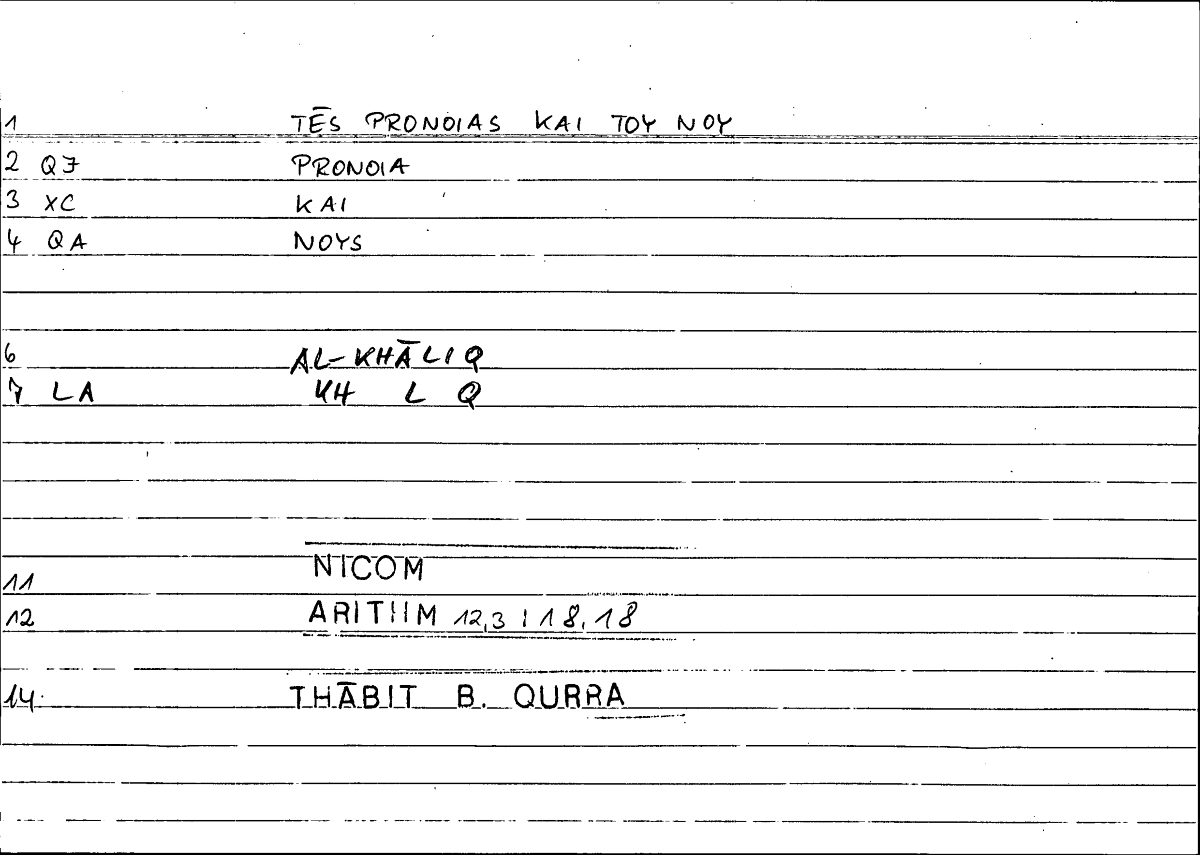 1 TĒS PRONOIAS KAI TOY NOY
2 QJ PRONOIA
3 XC KAI
4 QA NOYS
6 AL-KHĀLIQ
7 LA KH L Q
11 NICOM
12 ARITHM 12,3 / 18,18
14. THĀBIT B. QURRA